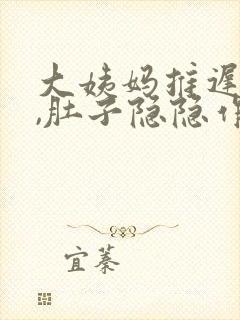 大姨妈推迟
,肚子隐隐作
宜蓁